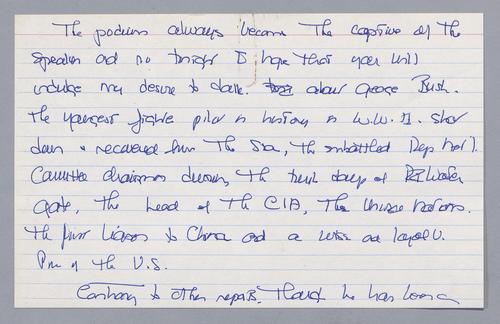 The podium always became the captive of the
speaker and so tonight I hope that you will
indulge my desire to about George Bush.
The youngest fighter pilot in history in W.W. II. shot
down & recovered from the sea, the embattled Rep Nat'l.
Committee chairman during the days of Water
gate, the head of the CIA, the United Nations.
The first Liaison to China and a wise and loyal V.
Pres of the U.S.
Contrary to other reports. Though he has been a